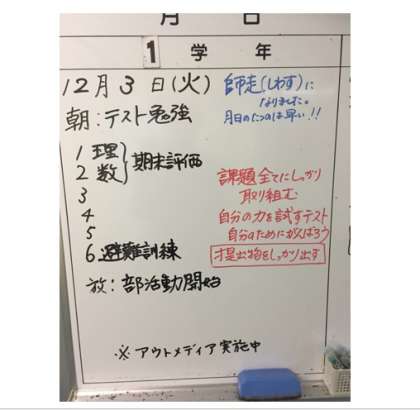 月 日
1 学 年
12月3日(火)
師走(しわす)に
なりました。
月日のたつのは早い!!
朝:テスト勉強
1 理
2 数
期末評価
3
4
5
6 避難訓練
課題全てにしっかり
取り組む
自分の力を試すテスト
自分のためにがんばろう
提出物をしっかり出す
放:部活動開始
※アウトメディア実施中